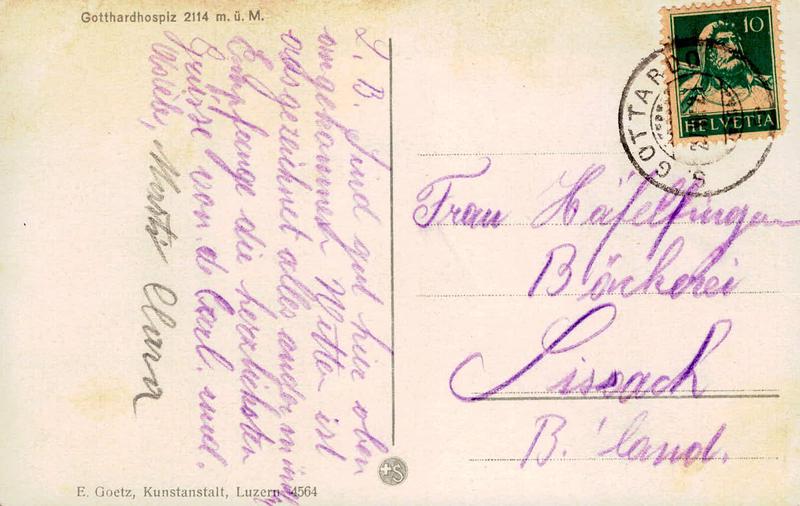 Gotthardhospiz 2114 m. ü. M.
L. B. Sind gut hier oben
angekommen Witter ist
ausgezeichnet alles andere
Empfange die herzlichsten
Grüsse von d. Carl. und.
Mutti Clara
10
HELVETIA
S. GOTTARDO
Frau Häfelfinger
Bäckerei
Sissach
B.'land.
E. Goetz, Kunstanstalt, Luzern 4564
+S